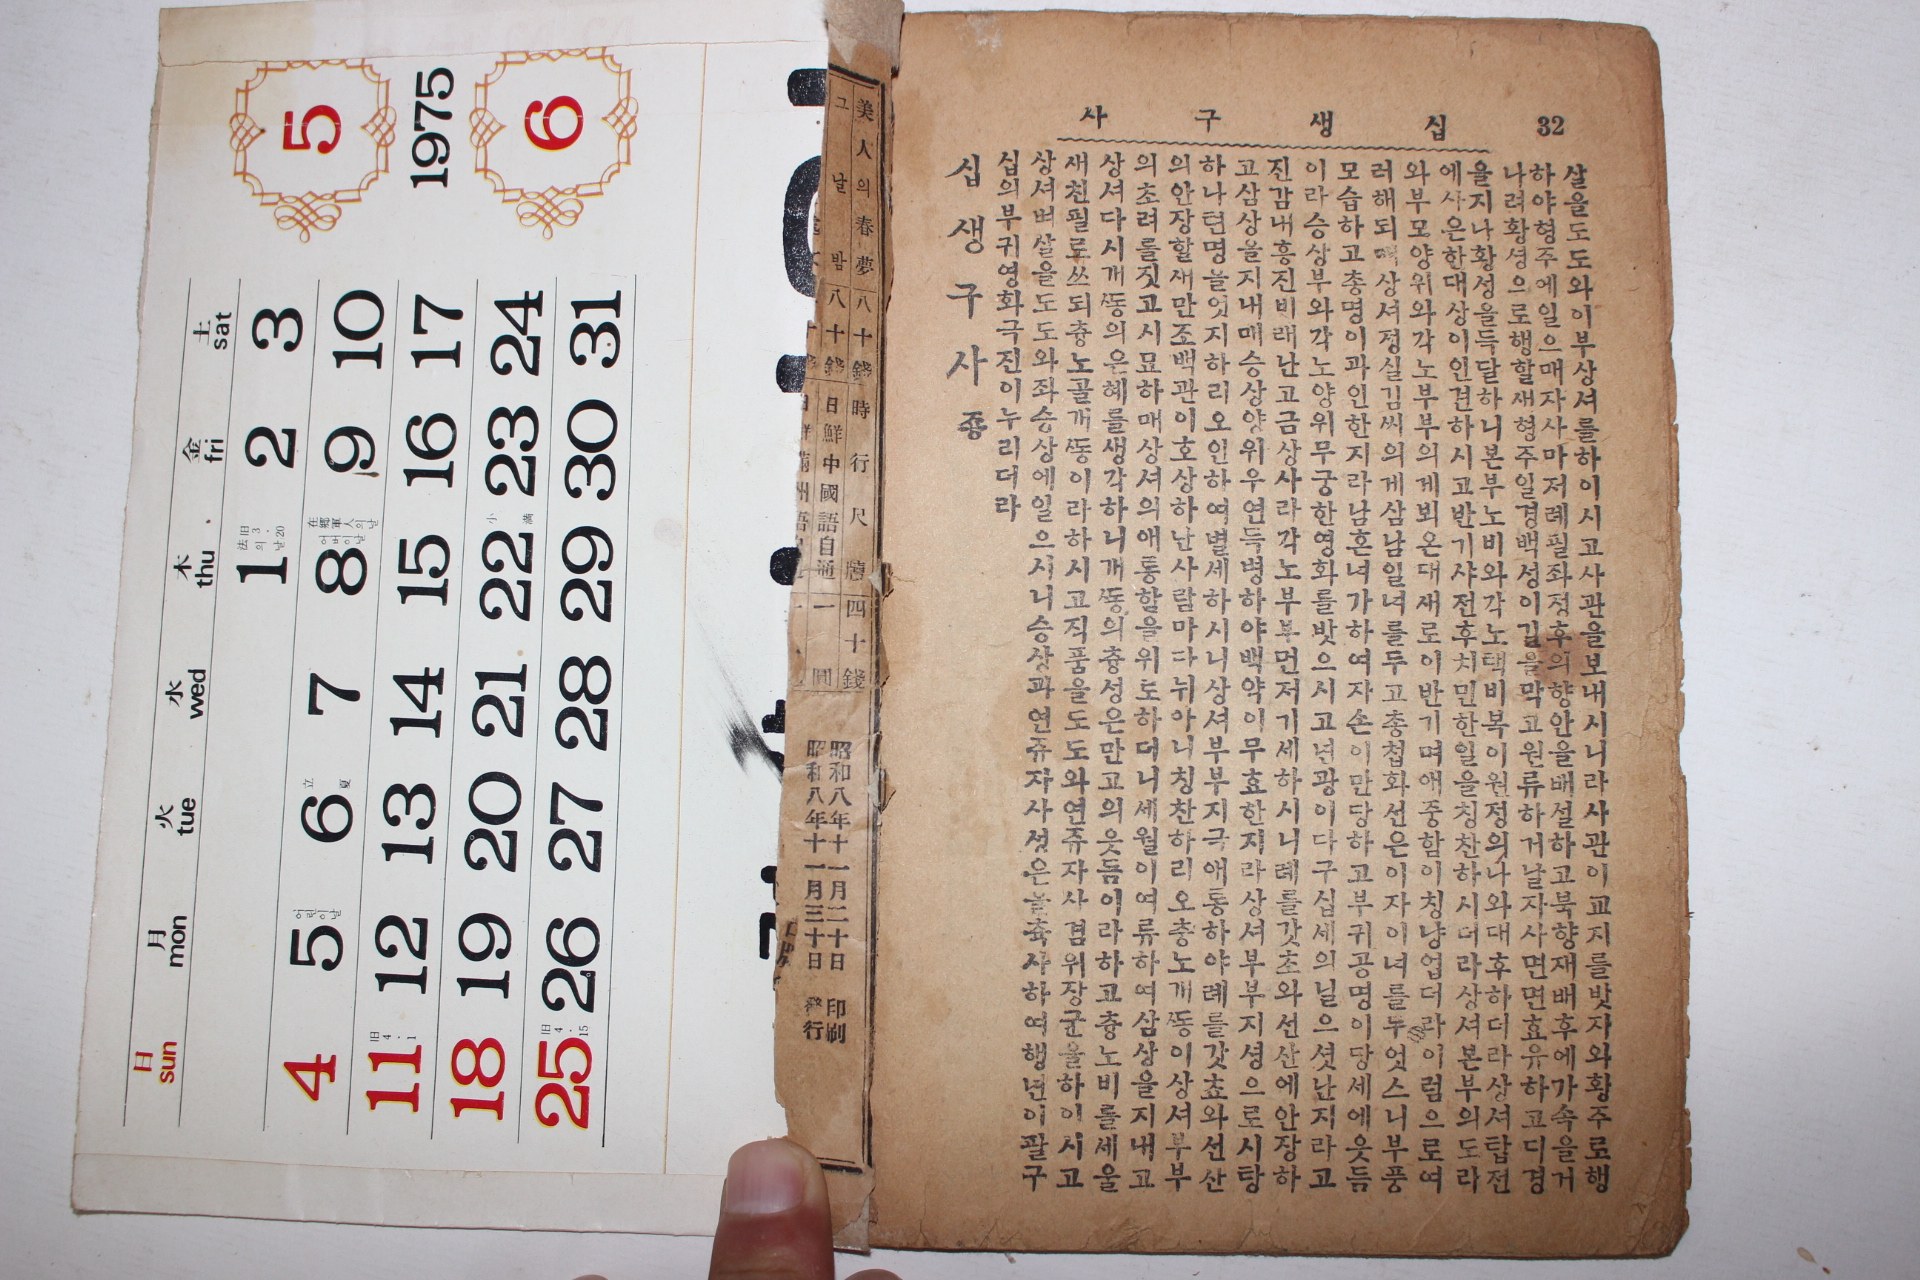 32 십생구사
살을도도와이부상셔를하이시고사관을보내시니라사관이교지를밧자와황주로행
하야형주에일으매자사마저례필좌정후의향안을배설하고북향재배후에가속을거
나려황셩으로행할새형주일경백성이길을막고원류하거날자사면면효유하고디경
을지나황성을득달하니본부노비와각노택비복이원정의나와대후하더라상셔탑전
에사은한대상이인견하시고반기샤전후치민한일을칭찬하시더라상셔본부의도라
와부모양위와각노부부의게뵈온대새로이반기며애중함이칭냥업더라이럼으로여
러해되매상셔정실김씨의게삼남일녀를두고총첩화선은이자이녀를두엇스니부풍
모습하고총명이과인한지라남혼녀가하여자손이만당하고부귀공명이당세에읏듬
이라승상부와각노양위무궁한영화를밧으시고년광이다구십세의닐으셧난지라고
진감내흥진비래난고금상사라각노부부먼저기세하시니례를갓초와선산에안장하
고삼상을지내매승상양위우연득병하야백약이무효한지라상셔부부지셩으로시탕
하나텬명늘엇지하리오인하여별세하시니상셔부부지극애통하야례를갓쵸와선산
의안장할새만조백관이호상하난사람마다뉘아니칭찬하리오충노개ᄯᅩᆼ이상셔부부
의초려를짓고시묘하매상셔의애통할을위로하더니세월이여류하여삼상을지내고
상셔다시개ᄯᅩᆼ의은혜를생각하니개ᄯᅩᆼ의츙성은만고의읏듬이라하고츙노비를세울
새친필로쓰되츙노골개ᄯᅩᆼ이라하시고직품을도도와연쥬자사겸위장군을하이시고
상셔벼살을도도와좌승상에일으시니승상과연쥬자사셧은늘츅사하여행년이팔구
십의부귀영화극진이누리더라
십생구사종
美人의春夢 八十錢 時行尺牘 四十錢
그날밤 八十錢 日鮮中國語自通 一圓
昭和八年十一月二十日 印刷
昭和八年十一月三十日 發行
5 1975 6
日 月 火 水 木 金 土
sun mon tue wed thu fri sat
1 2 3
法의날
旧 3·20
4 5 6 7 8 9 10
어린이날
立夏
어버이날
在鄕軍人의날
11 12 13 14 15 16 17
旧 4·1
18 19 20 21 22 23 24
小滿
25 26 27 28 29 30 31
旧 4·15